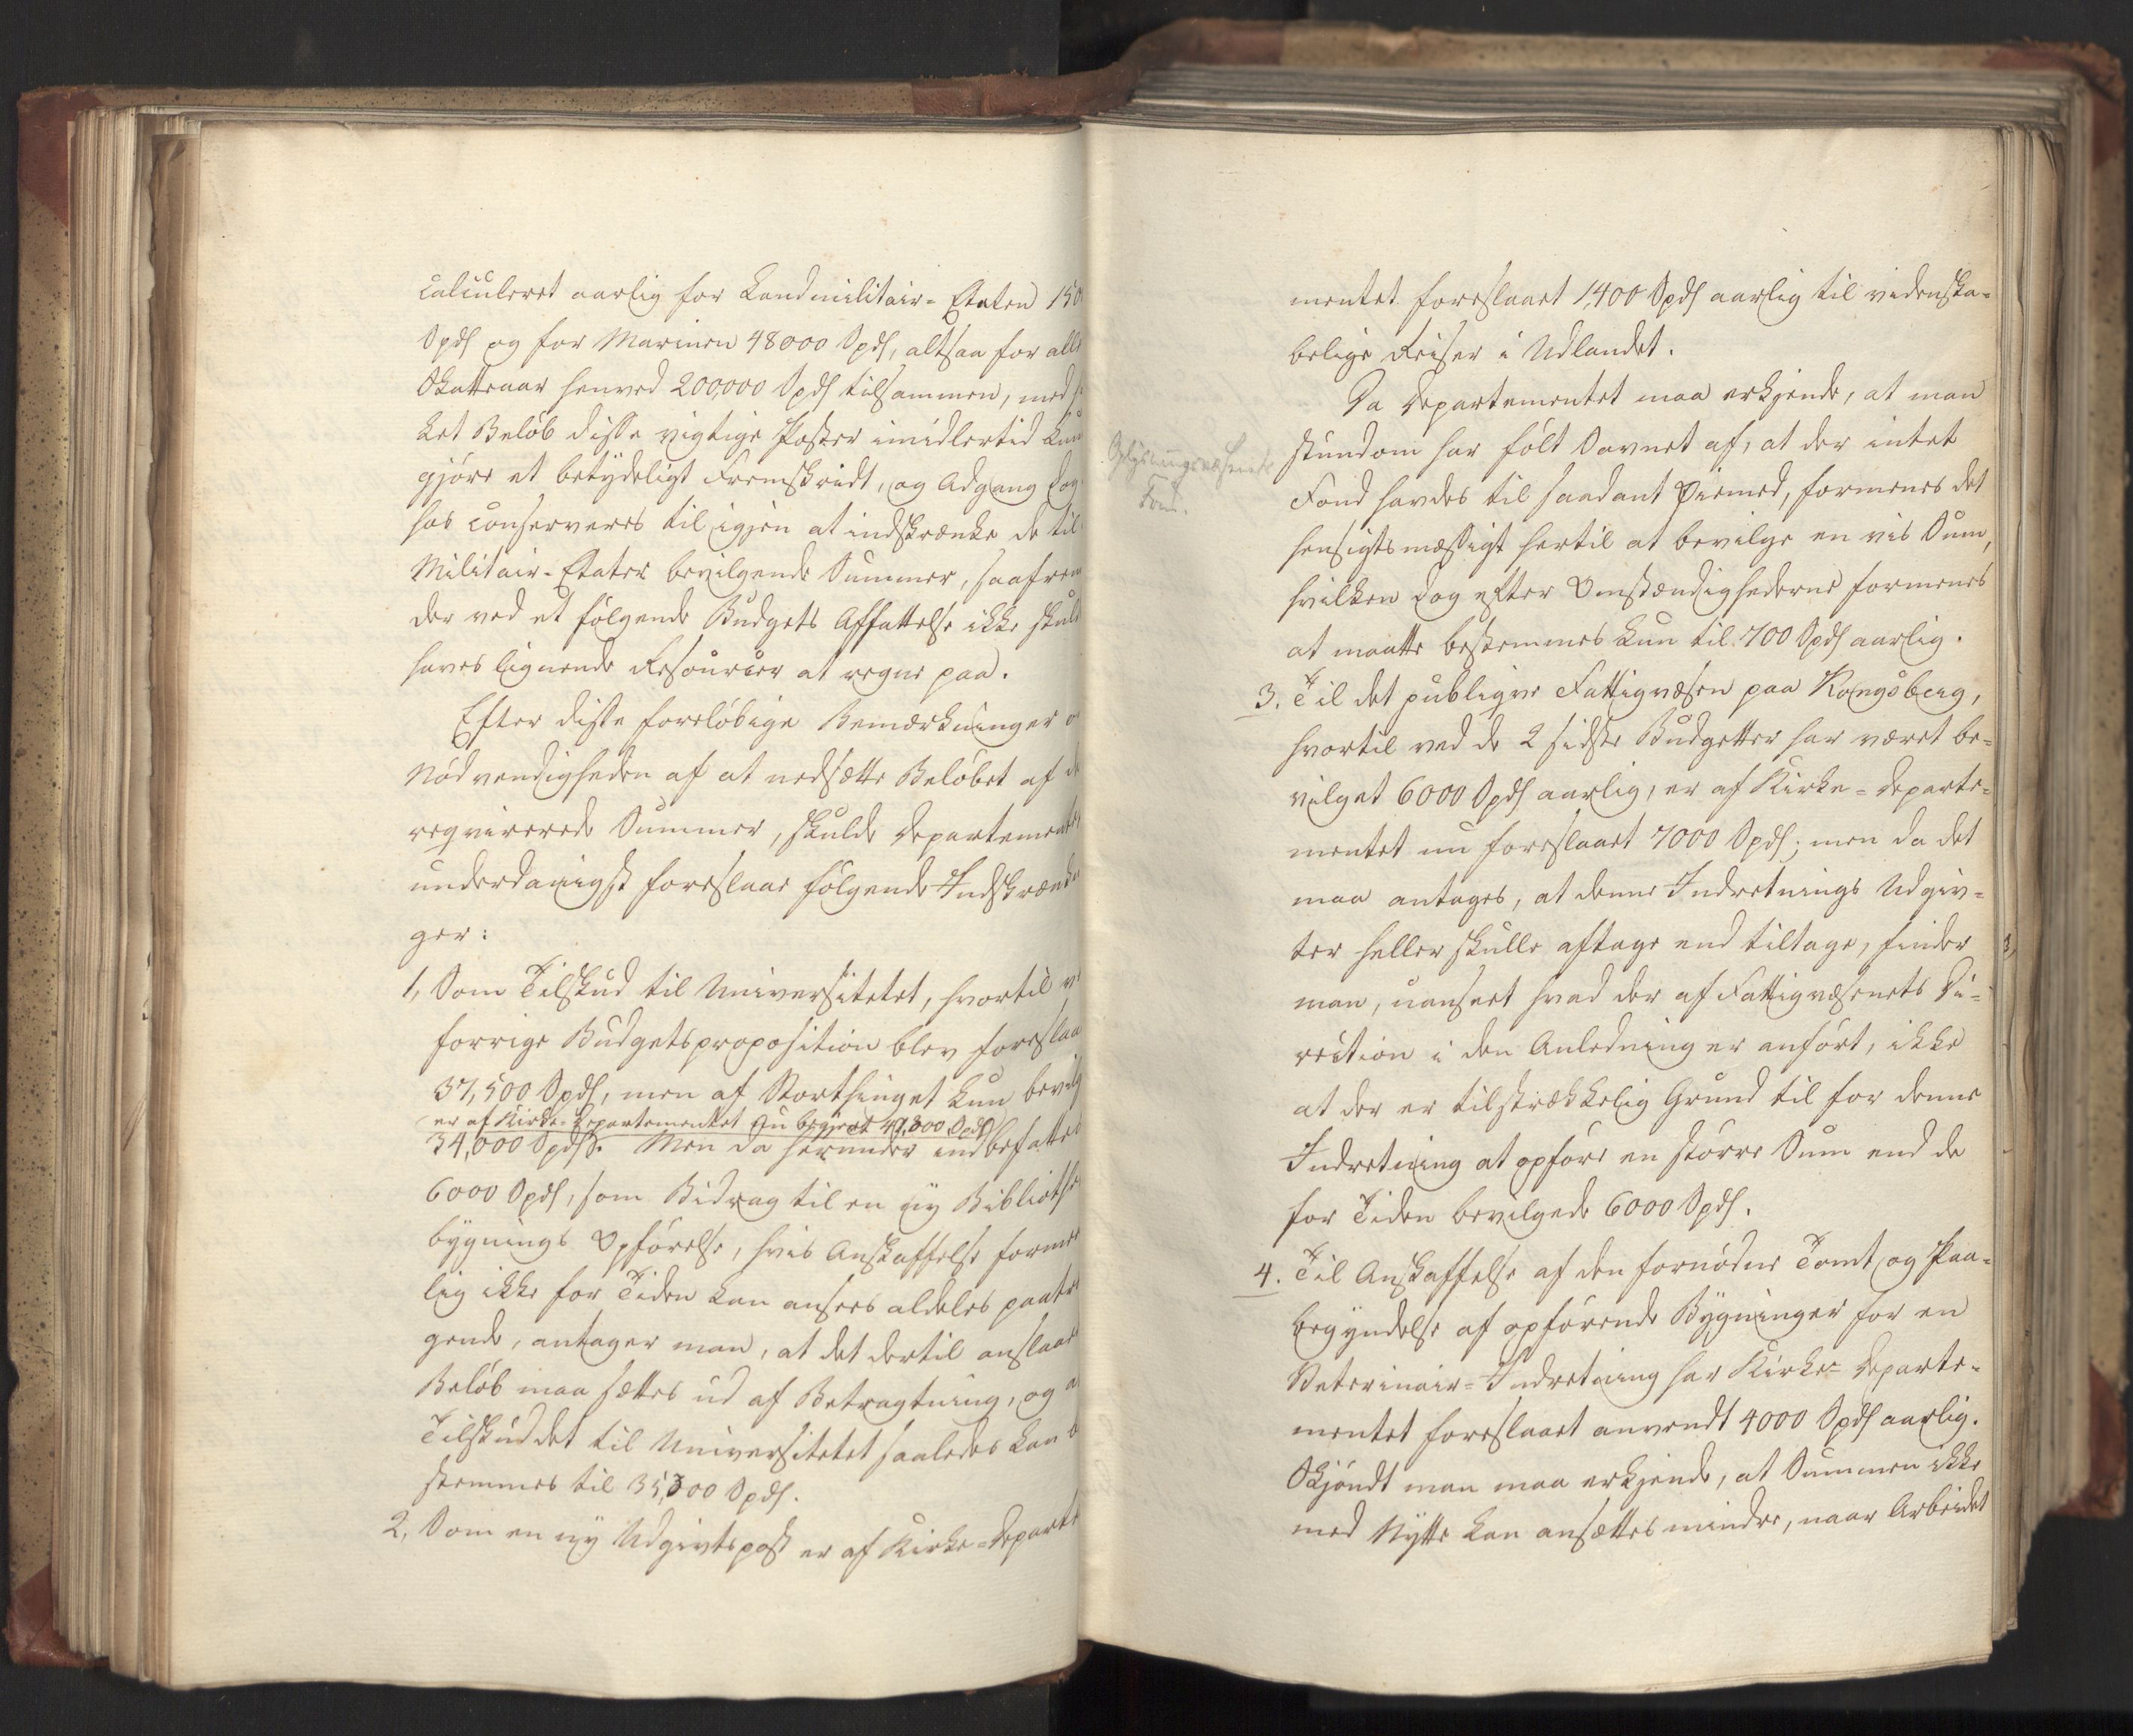 calculeret aarlig for Landmilitair-Etaten 150
Spd og for Marinen 48000 Spd, altsaa for alle
Skatteaar henved 200,000 Spd tilsammen, med
ket Beløb disse vigtige Poster imidlertid kun
gjøre et betydeligt Fremskridt, og Adgang dog
hos conserveres til igjen at indskrænke de til
Militair-Etater bevilgende Summer, saafrem
der ved et følgende Budgets Affattelse ikke skuld
haves lignende Resourcer at regne paa.
Efter disse foreløbige Bemærkninger o
Nødvendigheden af at nedsætte Beløbet af de
reqvirerede Summer, skulde Departementet
underdanigst foreslaae følgende Indskrænkn
ger:
1, Som Tilskud til Universitetet, hvortil ve
forrige Budgetsproposition blev foreslaa
37,500 Spd, men af Storthinget kun bevilg
er af Kirke-Departementet nu begjert 41,800 Spd
34,000 Spd. Men da herunder indbefattes
6000 Spd, som Bidrag til en ny Biblioth
bygnings Opførelse, hvis Anskaffelse formee
lig ikke for Tiden kan ansees aldeles paatræ
gende, antager man, at det dertil anslaae
Beløb maa sættes ud af Betragtning, og a
Tilskuddet til Universitetet saaledes kan b
stemmes til 35,800 Spd.
2, Som en ny Udgivtspost er af Kirke-Departe
mentet foreslaaet 1,400 Spd aarlig til videnska-
belige Reiser i Udlandet.
Da Departementet maa erkjende, at man
stundom har følt Savnet af, at der intet
Oplysningsvæsenets
Fond.
Fond havdes til saadant Øiemed, formenes det
hensigtsmæssigt hertil at bevilge en vis Sum,
hvilken dog efter Omstændighederne formenes
at maatte bestemmes kun til 700 Spd aarlig.
3. Til det publiqve Fattigvæsen paa Kongsberg,
hvortil ved de 2 sidste Budgetter har været be-
vilget 6000 Spd aarlig, er af Kirke-Departe-
mentet nu foreslaaet 7000 Spd; men da det
maa antages, at denne Indretnings Udgiv-
ter heller skulle aftage end tiltage, finder
man, uanseet hvad der af Fattigvæsenets Di-
rection i den Anledning er anført, ikke
at der er tilstrækkelig Grund til for denne
Indretning at opføre en større Sum end de
for Tiden bevilgede 6000 Spd.
4. Til Anskaffelse af den fornødne Tomt og Paa-
begyndelse af opførende Bygninger for en
Veterinair-Indretning har Kirke-Departe-
mentet foreslaaet anvendt 4000 Spd aarlig.
Skjøndt man maa erkjende, at Summen ikke
med Nytte kan ansættes mindre, naar Arbeidet